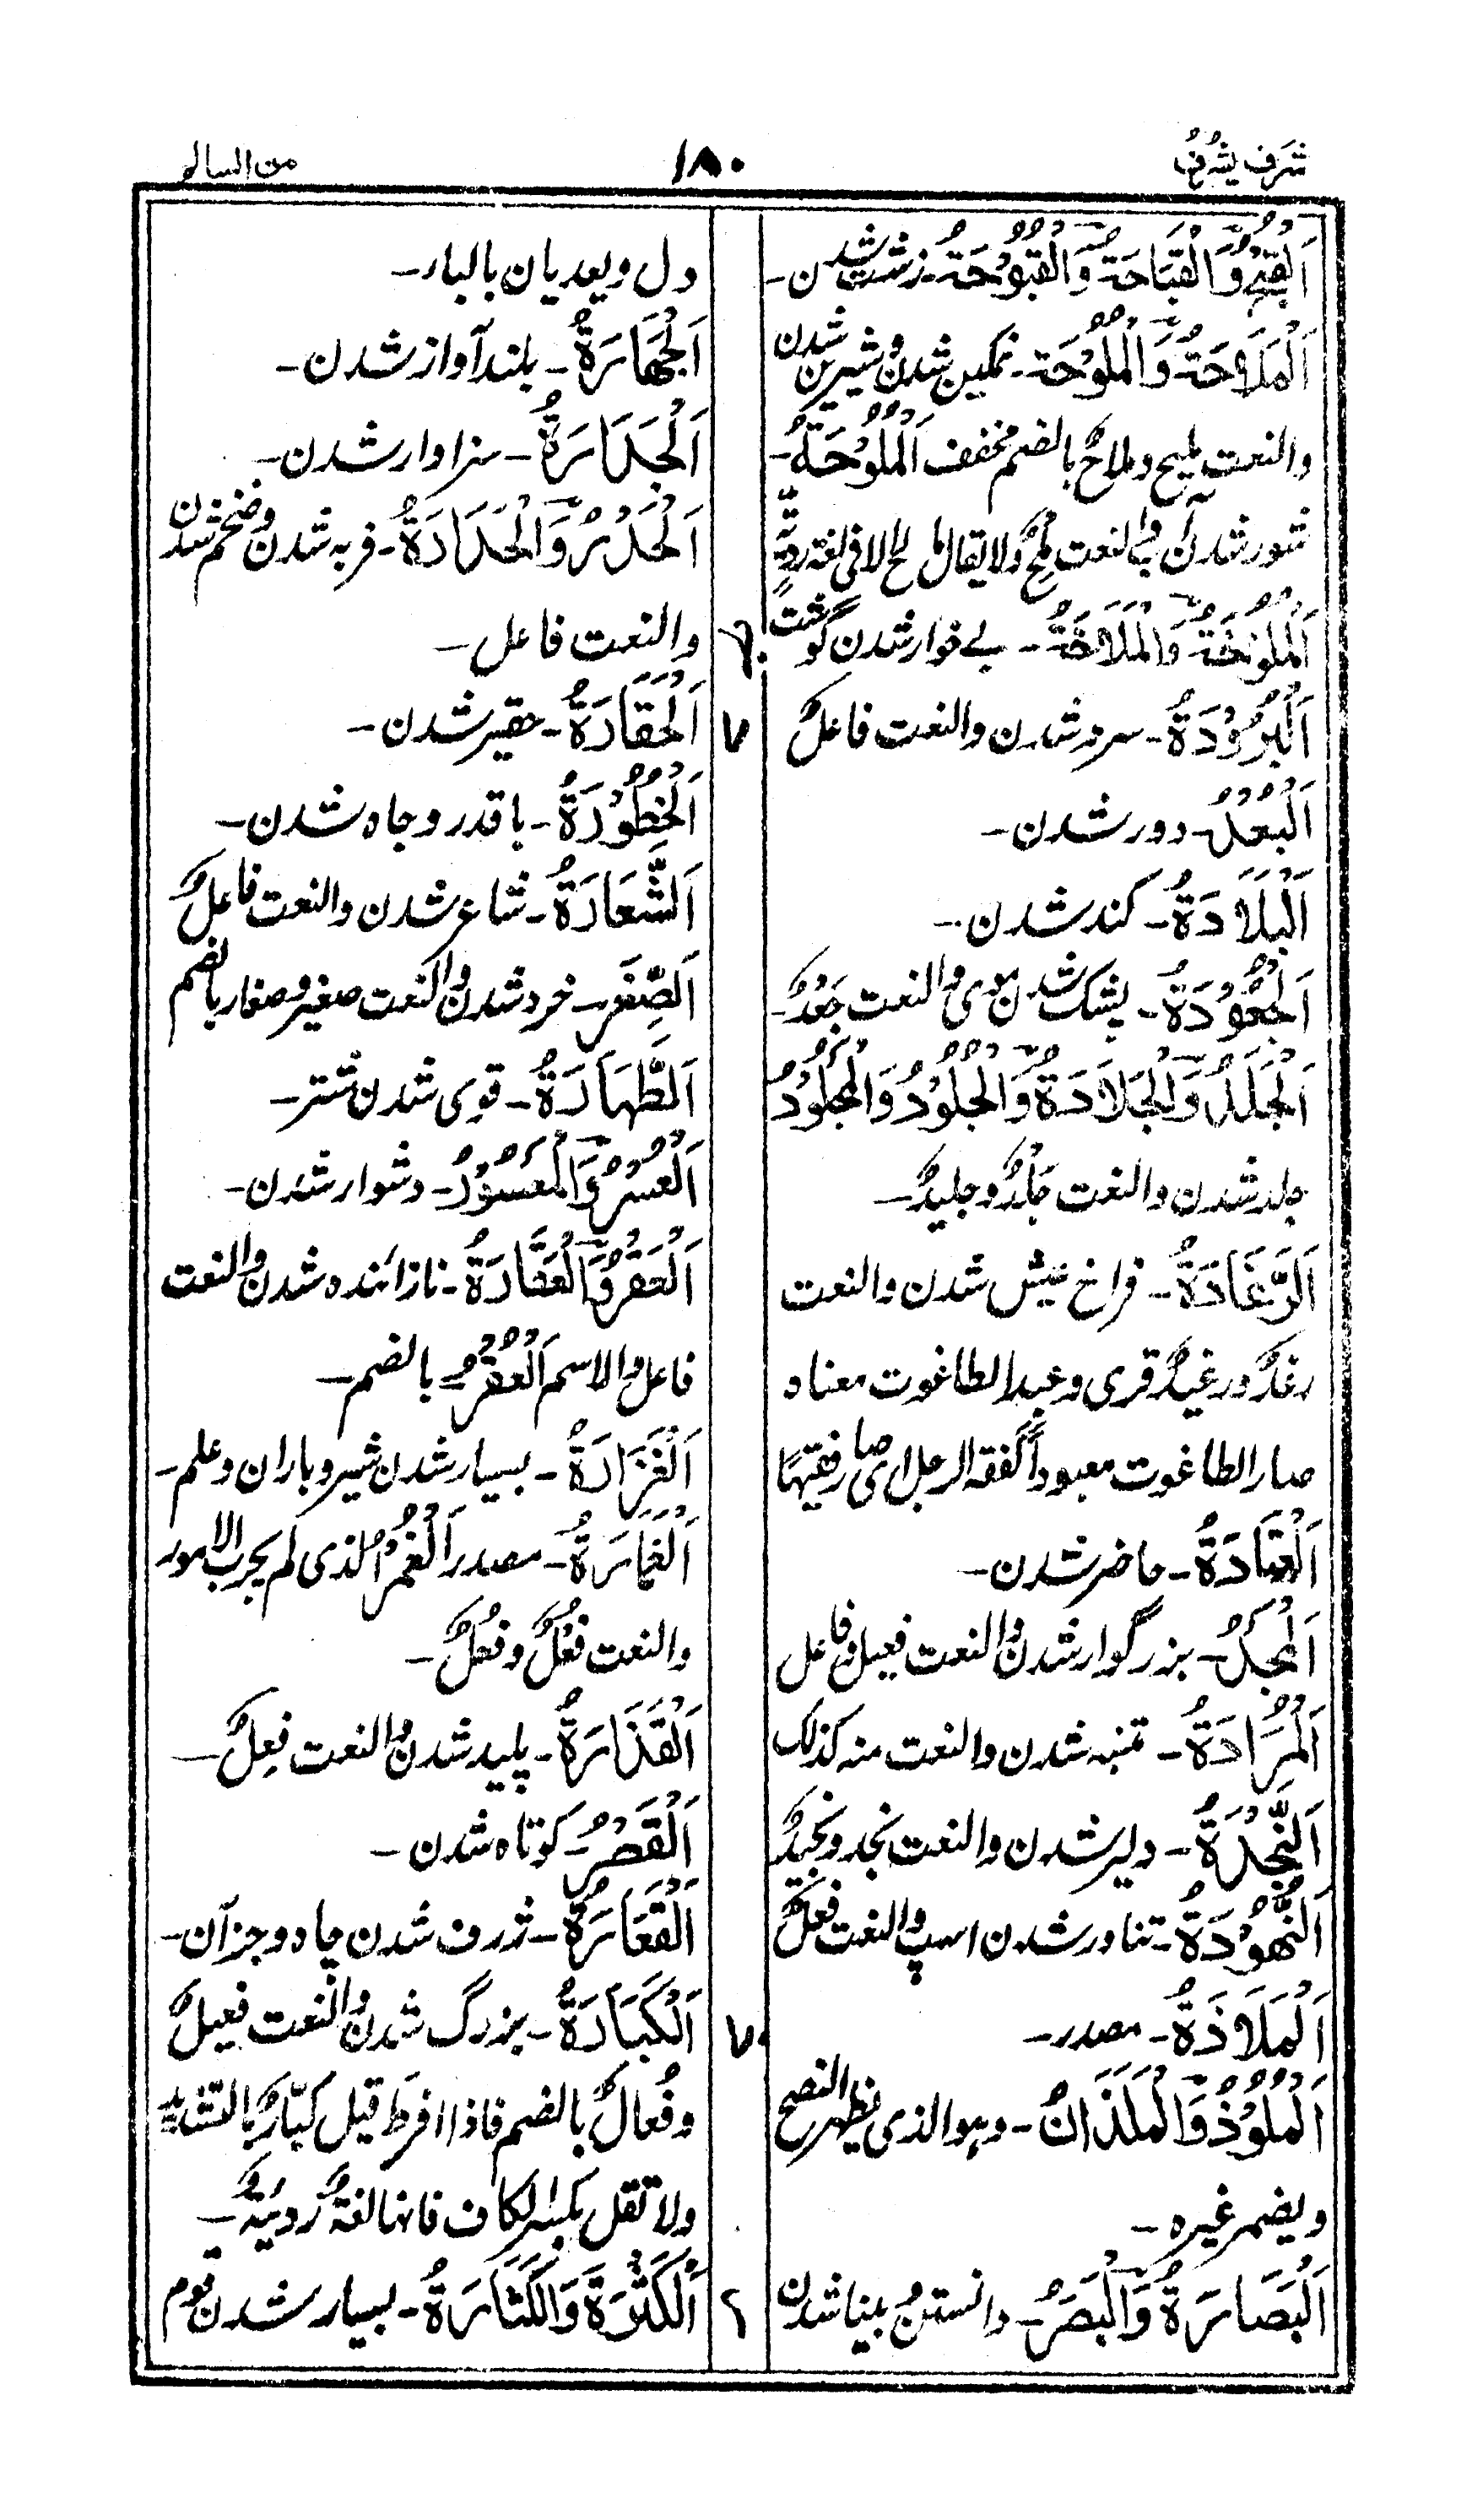 شَرَف يشرُفُ
١٨٠
من السالم
اَلْقُبْحُ وَالْقَبَاحَةُ وَالْقُبُوْحَةُ - زشت شدن -
اَلْمَلَاحَةُ وَالْمُلُوْحَة - نمکین شدن و شیرین شدن
والنعت ملیح وملاحٌ بالضم مخفف اَلْمُلُوْحَةُ -
شور شدن آب والنعت مِلحٌ ولا یقال مالح الا فی لغة ردیّة
اَلْمُلُوْخَةُ وَالْمَلَاخَةُ - بے خوار شدن گوشت
اَلْبُرُوْدَةُ - سرد شدن والنعت فاعلٌ
اَلْبُعْدُ - دور شدن -
اَلْبَلَادَةُ - کند شدن -
اَلْجُعُوْدَةُ - پشک شدن موی والنعت جَعْدٌ -
اَلْجَلَدُ وَالْجَلَادَةُ وَالْجُلُوْدُ وَالْمَجْلُوْدُ
جلد شدن والنعت جَلْدٌ وجلیدٌ -
اَلرَّغَادَةُ - فراخ عیش شدن والنعت
رغدٌ ورغیدٌ قری وعبد الطاغوت معناه
صار الطاغوت معبوداً کفقه الرجل ای صار فقیها
اَلْعَتَادَةُ - حاضر شدن -
اَلْمَجْدُ - بزرگوار شدن والنعت فعیل وفاعل
اَلْمَرَادَةُ - تمنبه شدن والنعت منه کذلک
اَلنَّجْدَةُ - دلیر شدن والنعت نجد ونجیدٌ
اَلنُّهُوْدَةُ - تناور شدن اسپ والنعت فَعْلٌ
اَلْمَلَاذَةُ - مصدر -
اَلْمُلُوْذُ وَالْمَلَذَانُ - وهو الذی یظهر النصح
ویضمر غیره -
اَلْبَصَارَةُ وَالْبَصَرُ - دانستن و بینا شدن
دل ویعدیان بالباء -
اَلْجَهَارَةُ - بلند آواز شدن -
اَلْجَدَارَةُ - سزاوار شدن -
اَلْحَدْرُ وَالْحَدَارَةُ - فربه شدن وضخم شدن
والنعت فاعل -
اَلْحَقَارَةُ - حقیر شدن -
اَلْخُطُوْرَةُ - با قدر و جاه شدن -
اَلشَّعَارَةُ - شاعر شدن والنعت فاعلٌ
اَلصِّغَرُ - خرد شدن والنعت صغیر وصغار بالضم
اَلطَّهَارَةُ - قوی شدن شتر -
اَلْعُسْرُ وَالْمَعْسُوْرُ - دشوار شدن -
اَلْعُقْرُ وَالْعَقَارَةُ - نازائنده شدن والنعت
فاعل والاسم اَلْعُقْرُ بالضم -
اَلْغَزَارَةُ - بسیار شدن شیر و باران و علم -
اَلْغَمَارَةُ - مصدر اَلْغُمْرُ الذی لم یجرب الامور
والنعت فَعْلٌ وفُعْلٌ -
اَلْقَذَارَةُ - پلید شدن والنعت فَعِلٌ -
اَلْقَصْرُ - کوتاه شدن -
اَلْقَعَارَةُ - ژرف شدن چاه و جز آن -
اَلْکَبَارَةُ - بزرگ شدن والنعت فعیلٌ
وفُعالٌ بالضم فاذا افرط قیل کبّارٌ بالتشدید
ولا تقل بکسر الکاف فانها لغةٌ ردیّةٌ -
اَلْکَثْرَةُ وَالْکَثَارَةُ - بسیار شدن قوم